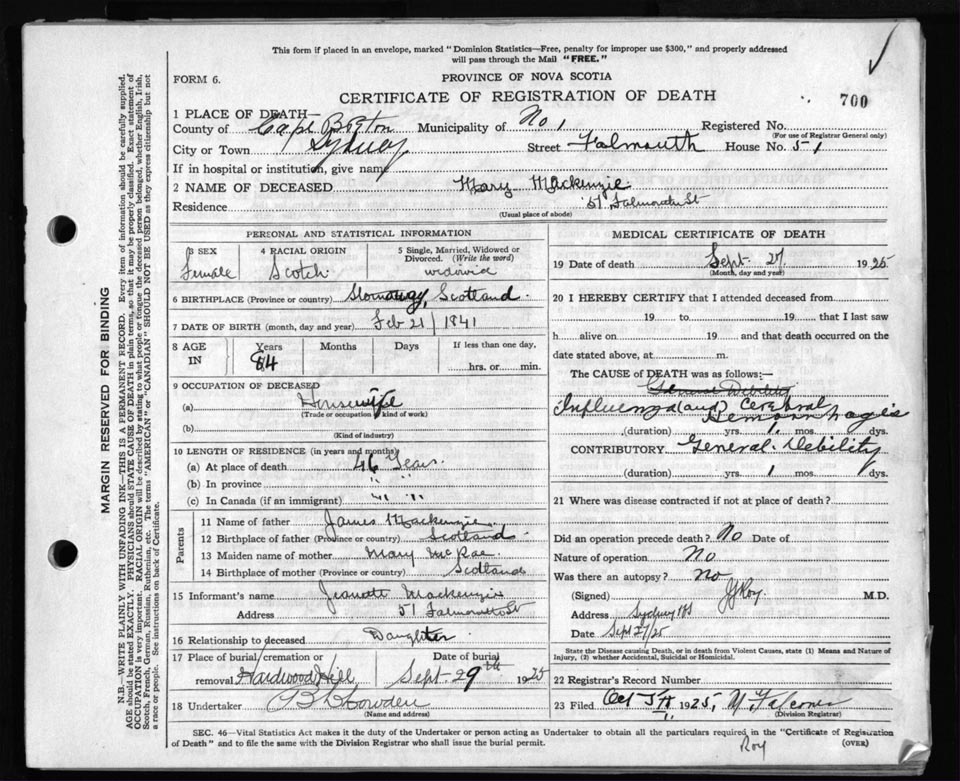 This form if placed in an envelope, marked "Dominion Statistics—Free, penalty for improper use $300," and properly addressed
will pass through the Mail "FREE."
FORM 6.
PROVINCE OF NOVA SCOTIA
CERTIFICATE OF REGISTRATION OF DEATH
700
1 PLACE OF DEATH—
County of Cape Breton Municipality of No 1 Registered No.
(For use of Registrar General only)
City or Town Sydney Street Falmouth House No. 51
If in hospital or institution, give name
2 NAME OF DECEASED Mary Mackenzie
Residence 51 Falmouth St
(Usual place of abode)
PERSONAL AND STATISTICAL INFORMATION
3 SEX
Female
4 RACIAL ORIGIN
Scotch
5 Single, Married, Widowed or
Divorced. (Write the word)
widow
6 BIRTHPLACE (Province or country) Stornoway, Scotland
7 DATE OF BIRTH (month, day and year) Feb 21 / 1841
8 AGE
IN
Years
84
Months
Days
If less than one day,
hrs. or min.
9 OCCUPATION OF DECEASED
(a) Housewife
(Trade or occupation or kind of work)
(b)
(Kind of industry)
10 LENGTH OF RESIDENCE (in years and months)
(a) At place of death 46 Years
(b) In province " "
(c) In Canada (if an immigrant) " "
Parents
11 Name of father James Mackenzie
12 Birthplace of father (Province or country) Scotland
13 Maiden name of mother Mary McRae
14 Birthplace of mother (Province or country) Scotland
15 Informant's name Mackenzie
Address 51 Falmouth St
16 Relationship to deceased Daughter
17 Place of burial, cremation or
removal Hardwood Hill
Date of burial
Sept 29th 1925
18 Undertaker
(Name and address)
MEDICAL CERTIFICATE OF DEATH
19 Date of death Sept. 27 1925
(Month, day and year)
20 I HEREBY CERTIFY that I attended deceased from
19 to 19 that I last saw
h alive on 19 and that death occurred on the
date stated above, at m.
The CAUSE of DEATH was as follows:—
General Debility
Influenza (and) Cerebral
Hemorrhages
(duration) yrs. 1 mos. dys.
CONTRIBUTORY General Debility
(duration) yrs. 1 mos. dys.
21 Where was disease contracted if not at place of death?
Did an operation precede death? No Date of
Nature of operation No
Was there an autopsy? No
(Signed) Roy M.D.
Address Sydney NS
Date Sept 27/25
State the Disease causing Death, or in death from Violent Causes, state (1) Means and Nature of
Injury, (2) whether Accidental, Suicidal or Homicidal.
22 Registrar's Record Number
23 Filed Oct 1925, M. Falconer
(Division Registrar)
SEC. 46—Vital Statistics Act makes it the duty of the Undertaker or person acting as Undertaker to obtain all the particulars required, in the "Certificate of Registration
of Death" and to file the same with the Division Registrar who shall issue the burial permit.
(OVER)
Roy
MARGIN RESERVED FOR BINDING
N.B.—WRITE PLAINLY WITH UNFADING INK—THIS IS A PERMANENT RECORD. Every item of information should be carefully supplied.
AGE should be stated EXACTLY. PHYSICIANS should STATE CAUSE OF DEATH in plain terms, so that it may be properly classified. Exact statement of
OCCUPATION is very important. RACIAL ORIGIN will be described by stating to what people or tongue the deceased person belonged, whether English, Irish,
Scotch, French, German, Russian, Ruthenian, etc. The terms "AMERICAN" or "CANADIAN" SHOULD NOT BE USED as they express citizenship but not
a race or people. See instructions on back of Certificate.